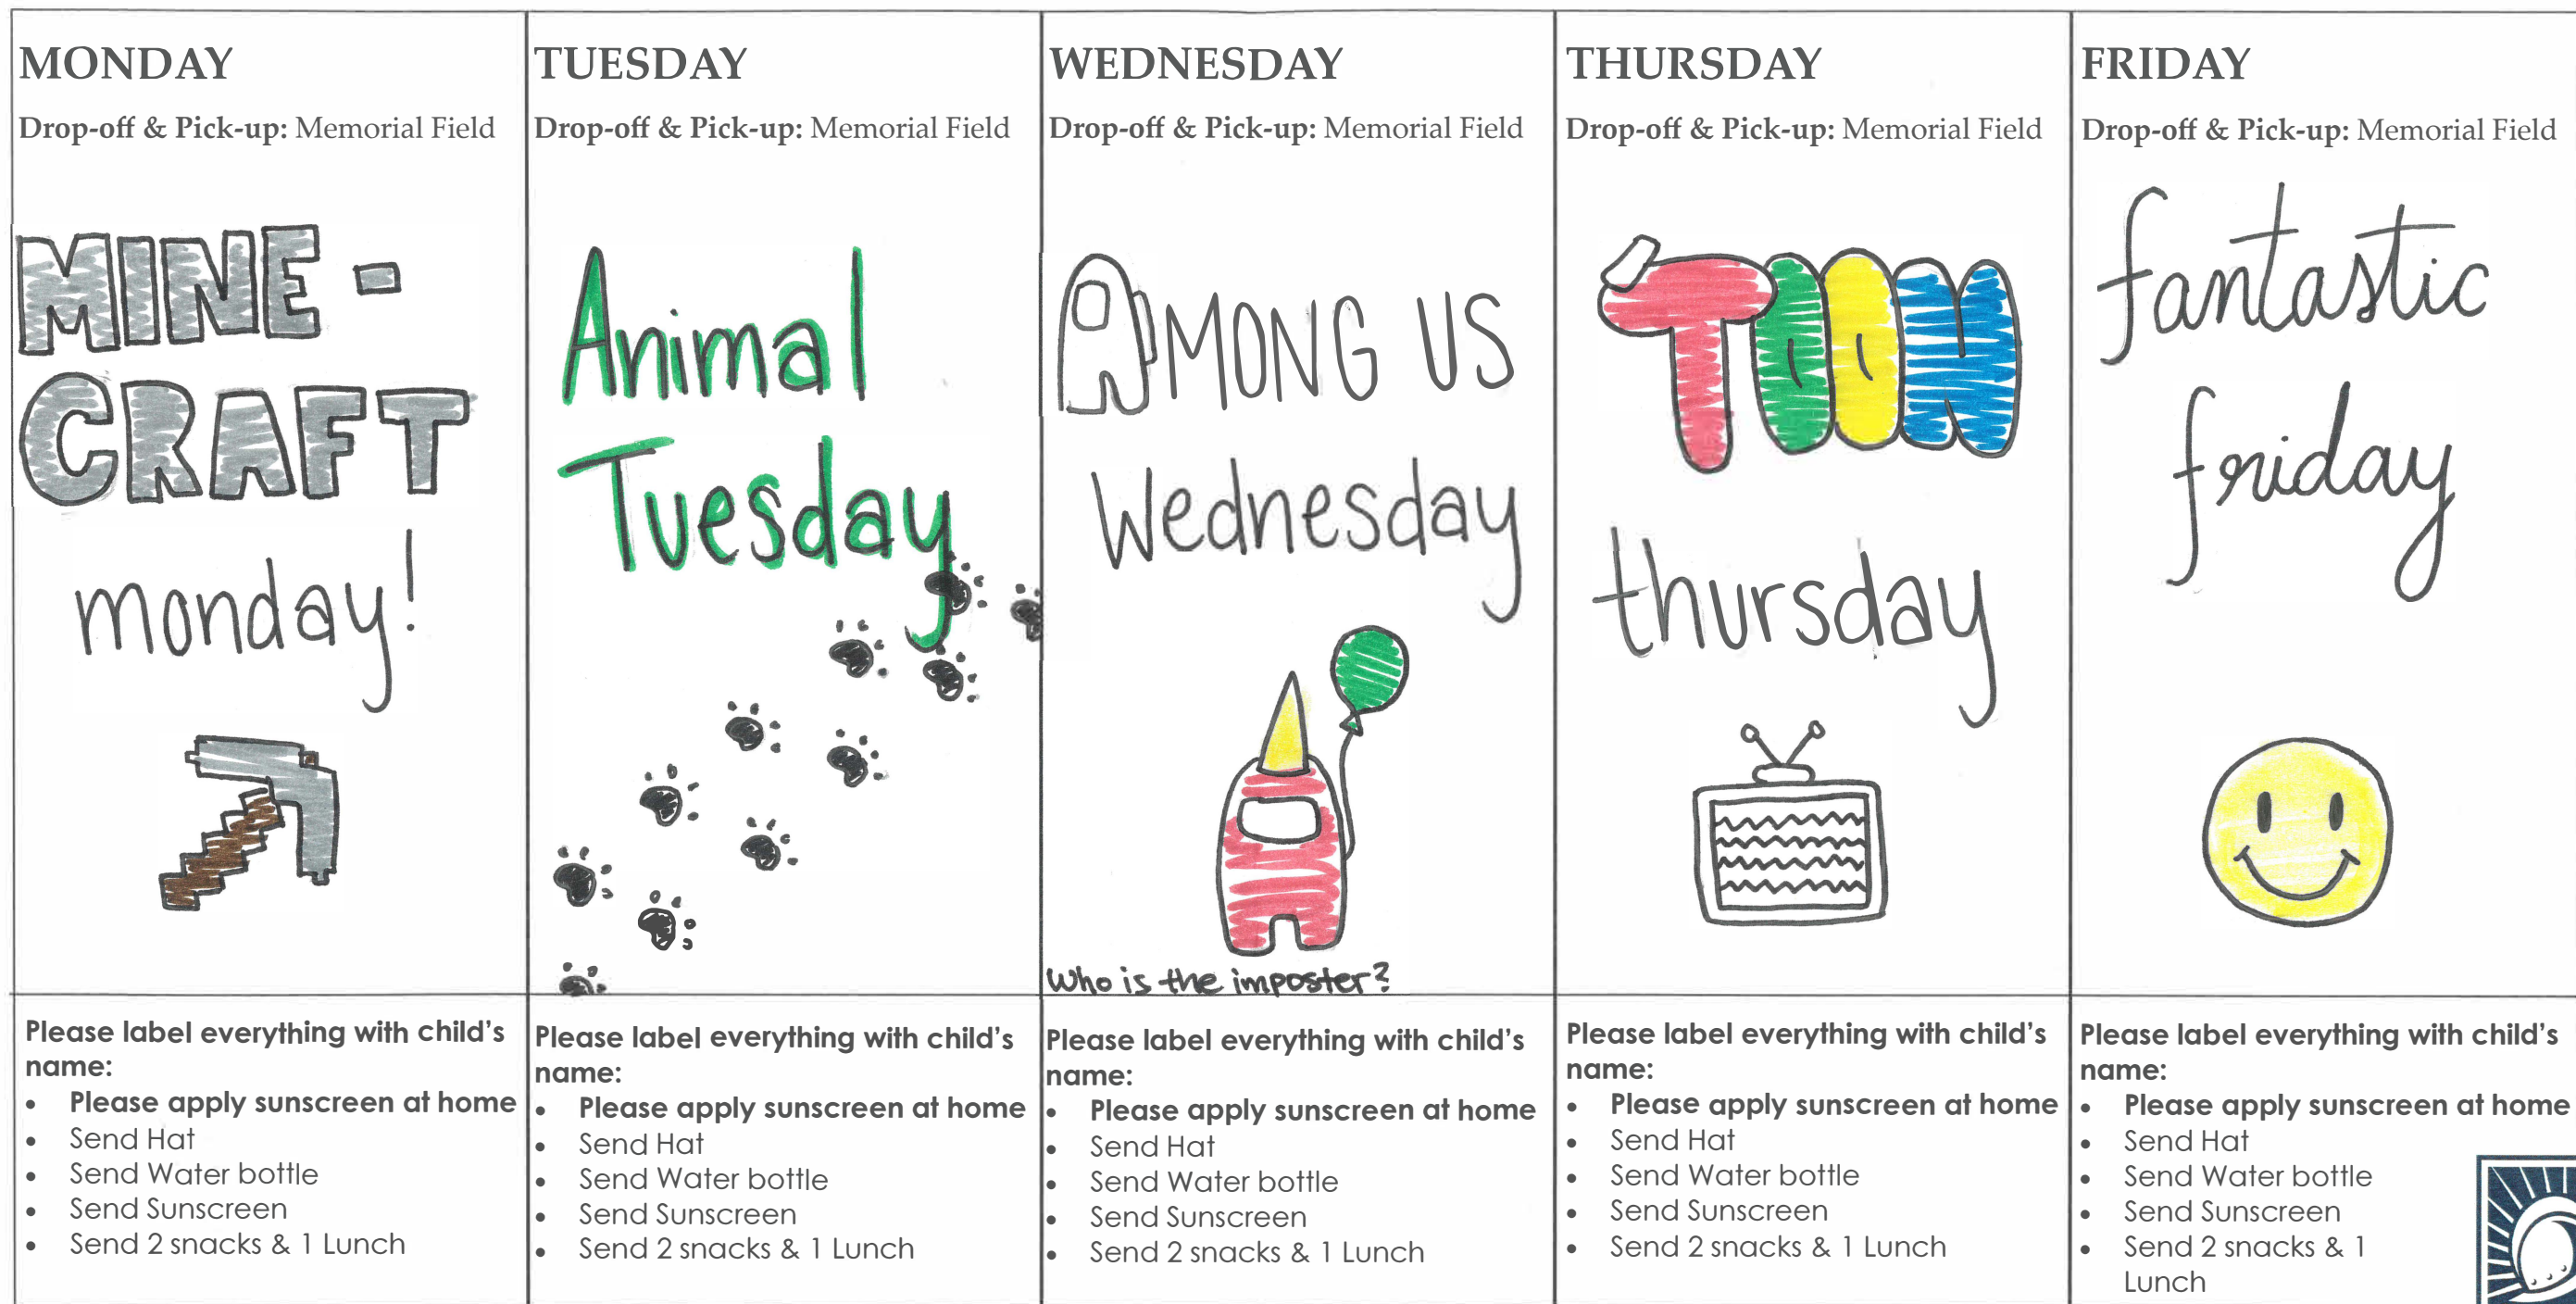 MONDAY
Drop-off & Pick-up: Memorial Field
MINE-
CRAFT
monday!
Please label everything with child's
name:
• Please apply sunscreen at home
• Send Hat
• Send Water bottle
• Send Sunscreen
• Send 2 snacks & 1 Lunch
TUESDAY
Drop-off & Pick-up: Memorial Field
Animal
Tuesday
Please label everything with child's
name:
• Please apply sunscreen at home
• Send Hat
• Send Water bottle
• Send Sunscreen
• Send 2 snacks & 1 Lunch
WEDNESDAY
Drop-off & Pick-up: Memorial Field
AMONG US
Wednesday
Who is the imposter?
Please label everything with child's
name:
• Please apply sunscreen at home
• Send Hat
• Send Water bottle
• Send Sunscreen
• Send 2 snacks & 1 Lunch
THURSDAY
Drop-off & Pick-up: Memorial Field
TOON
thursday
Please label everything with child's
name:
• Please apply sunscreen at home
• Send Hat
• Send Water bottle
• Send Sunscreen
• Send 2 snacks & 1 Lunch
FRIDAY
Drop-off & Pick-up: Memorial Field
fantastic
friday
Please label everything with child's
name:
• Please apply sunscreen at home
• Send Hat
• Send Water bottle
• Send Sunscreen
• Send 2 snacks & 1
Lunch